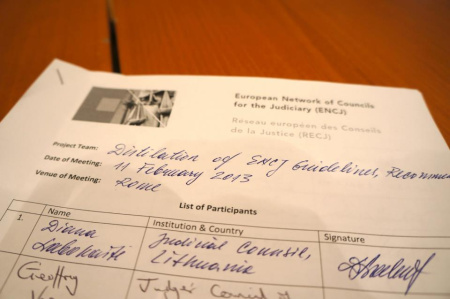 European Network of Councils
for the Judiciary (ENCJ)
Réseau européen des Conseils
de la Justice (RECJ)
Project Team: Distilation of ENCJ Guidelines, Recomme
Date of Meeting: 11 February 2013
Venue of Meeting: Rome
List of Participants
Name Institution & Country Signature
1. Diana Judicial Council,
Lithuania
Geoffrey